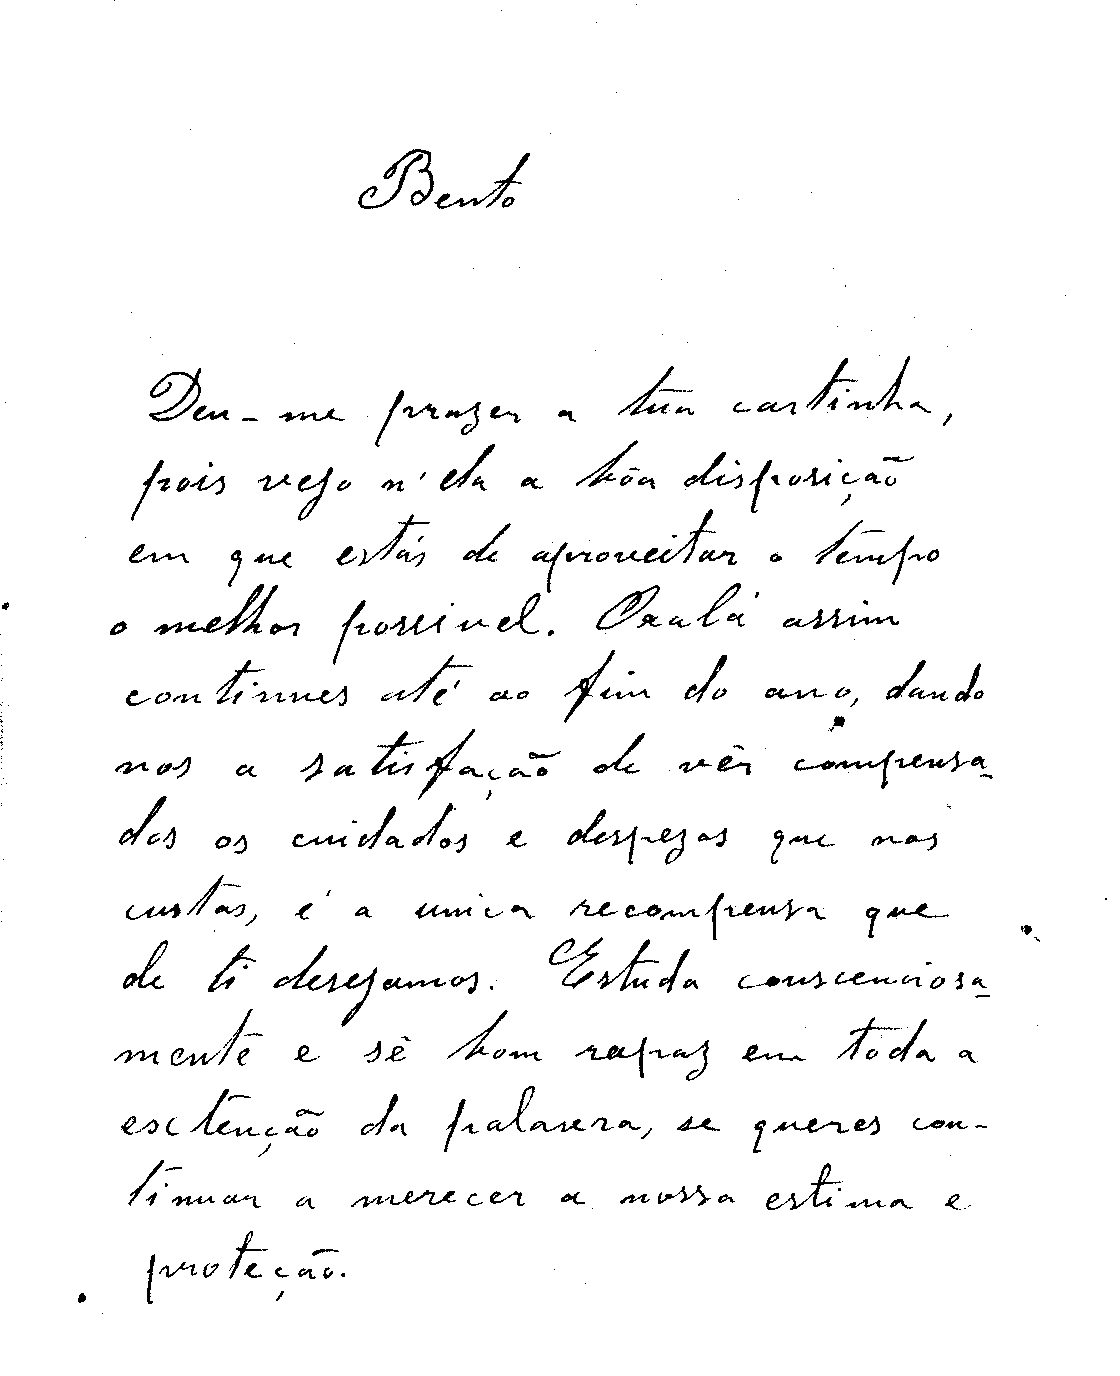 Bento
Deu-me prazer a tua cartinha,
pois vejo n'ela a bôa disposição
em que estás de aproveitar o tempo
o melhor possivel. Oxalá assim
continues até ao fim do ano, dando
nos a satisfação de vêr compensa-
dos os cuidados e despezas que nos
custas, é a unica recompensa que
de ti desejamos. Estuda conscenciosa-
mente e sê bom rapaz em toda a
extenção da palavra, se queres con-
tinuar a merecer a nossa estima e
proteção.